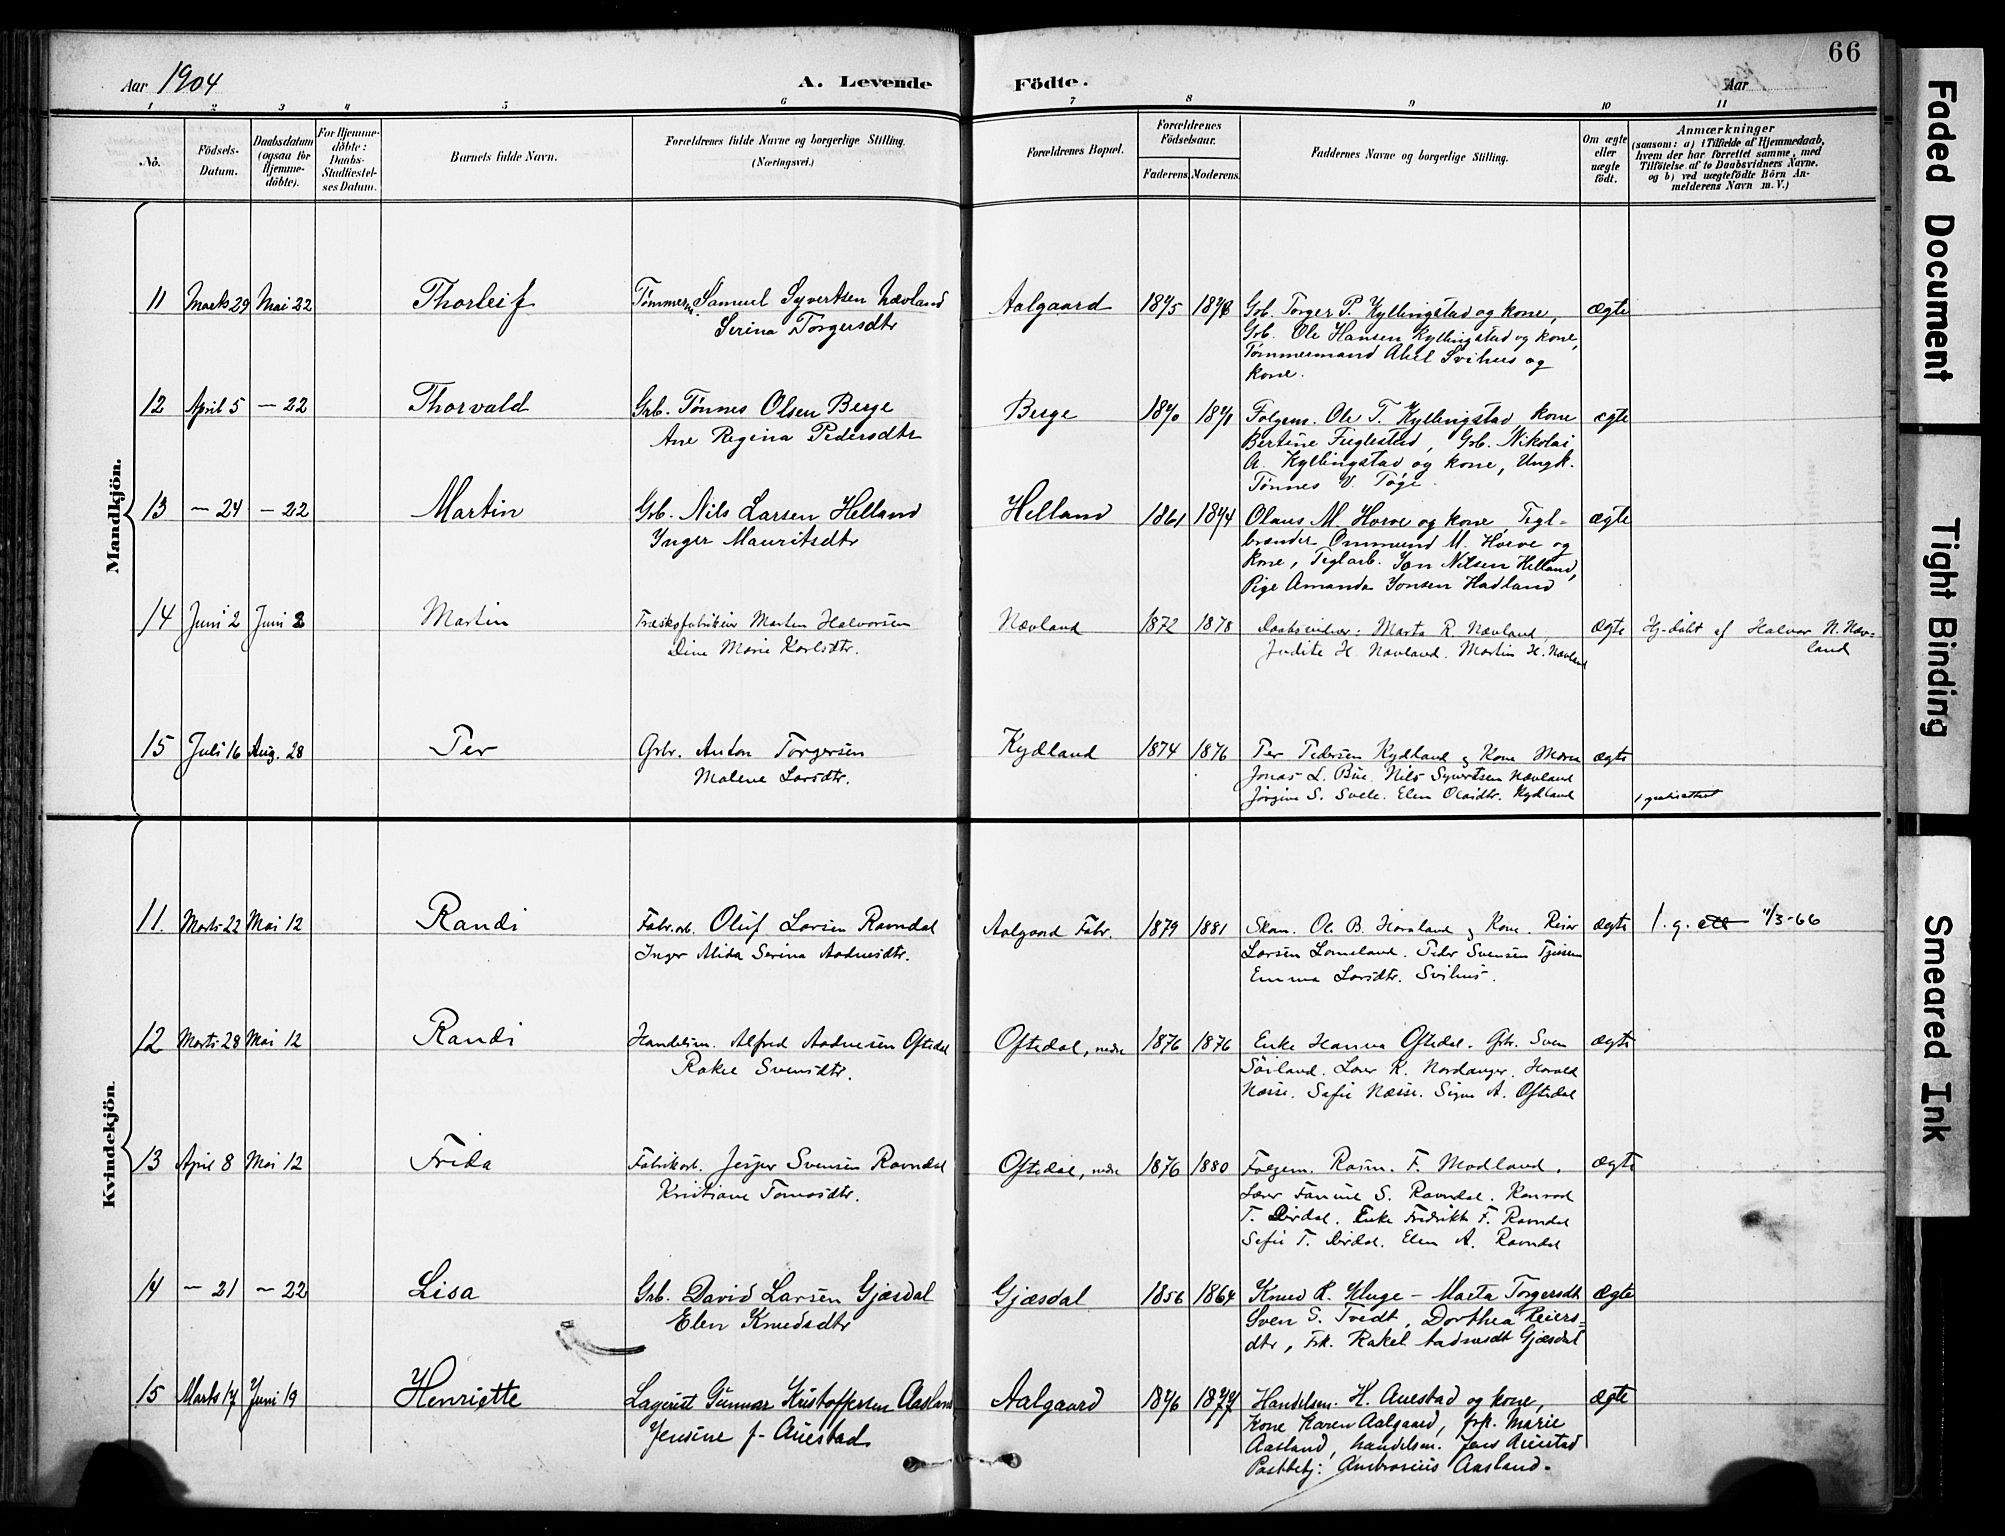 66
Aar 1904
A. Levende
Födte.
Aar
1 2 3 4 5 6 7 8 9 10 11
No.
Födsels-Datum.
Daabsdatum (ogsaa for Hjemmedöbte).
For Hjemmedöbte: Daabs-Stadfæstelses Datum.
Barnets fulde Navn.
Forældrenes fulde Navne og borgerlige Stilling. (Næringsvei.)
Forældrenes Bopæl.
Forældrenes Födselsaar.
Faderens. Moderens.
Faddernes Navne og borgerlige Stilling.
Om ægte eller uægte födt.
Anmærkninger
(saasom: a) i Tilfælde af Hjemmedaab,
hvem der har forrettet samme, med
Tilföielse af to Daabsvidners Navne,
og b) ved uægtefödte Börn An-
melderens Navn m. V.)
Mandkjön.
11 Marts 29 Mai 22 Thorleif Tømmerm. Samuel Syvertsen Nævland Aalgaard 1875 1878 Grb. Torger P. Kyllingstad og kone, ægte
Serina Torgersdtr Grb. Ole Hansen Kyllingstad og kone,
Tømmermand Abel Svihus og
kone.
12 April 5 — 22 Thorvald Grb. Tønnes Olsen Berge Berge 1870 1871 Folgem. Ole T. Kyllingstad kone ægte
Ane Regina Pedersdtr Bertine Fuglestad, Grb. Nikolai
A. Kyllingstad og kone, Ungk.
Tønnes V. Tøge.
13 — 24 — 22 Martin Grb. Nils Larsen Helland Helland 1861 1874 Olaus M. Horve og kone, Tegl- ægte
Inger Mauritsdtr brænder Ommund M. Horve og
kone, Teglarb. Jon Nilsen Helland,
Pige Amanda Jonsen Hadland
14 Juni 2 Juni 2 Martin Træskofabrikør Marten Halvorsen Nævland 1872 1878 Daabsvidner: Marta R. Nævland, ægte Hj.döbt af Halvor N. Næv-
Dine Marie Karlsdtr. Judite H. Nævland. Martin H. Nævland land
15 Juli 16 Aug. 28 Per Grbr. Anton Torgersen Kydland 1874 1876 Per Pedersen Kydland & Kone Maren ægte
Malene Larsdtr. Jonas L. Bue. Nils Syvertsen Nævland
Jørgine S. Svele. Elen Olaidtr. Kydland 1 gratisattest
Kvindekjön.
11. Marts 22 Mai 12 Randi Fabr.arb. Oluf Larsen Ravndal Aalgaard Fabr. 1879 1881 Skom. Ole B. Horsland & Kone. Reier ægte 1. g. att 11/3-66
Inger Alida Serina Aadnesdtr. Larsen Lomeland. Peder Svensen
Emma Larsdtr. Svihus.
12 Marts 28 Mai 12 Randi Handelsm. Alfred Aadnesen Oftedal Oftedal, nedre 1876 1876 Enke Hanna Oftedal. Grbr. Sven ægte
Rakel Svensdtr. Söiland. Lærer K. Nordanger. Harald
Næsse. Sofie Næsse. Signe A. Oftedal
13 April 8 Mai 12 Frida Fabrikarb. Jesper Svensen Ravndal Oftedal, nedre 1876 1880 Folgem. Rasm. F. Madland. ægte
Kristiane Tomasdtr. Lærer S. Ravndal. Konrad
T. Dirdal. Enke Fredrikke F. Ravndal
Sofie T. Dirdal. Elen A. Ravndal
14 — 21 — 22 Lisa Grb. David Larsen Gjæsdal Gjæsdal 1856 1864 Knud R. Kluge — Marta Torgersdt Ægte
Elen Knudsdtr Sven S. Tvedt, Dorthea Reiers=
dtr, Frk. Rakel Aadnesdt Gjæsdal
15 Marts 17 Juni 19 Henriette Lagerist Gunnar Kristoffersen Aasland Aalgaard 1876 1877 Handelsm. H. Auestad og kone, ægte
Jensine f. Auestad Kone Karen Aalgaard, frk. Marie
Aasland, handelsm. Jens Auestad
Postbetj. Ambrosius Aasland.
Faded Document
Tight Binding
Smeared Ink